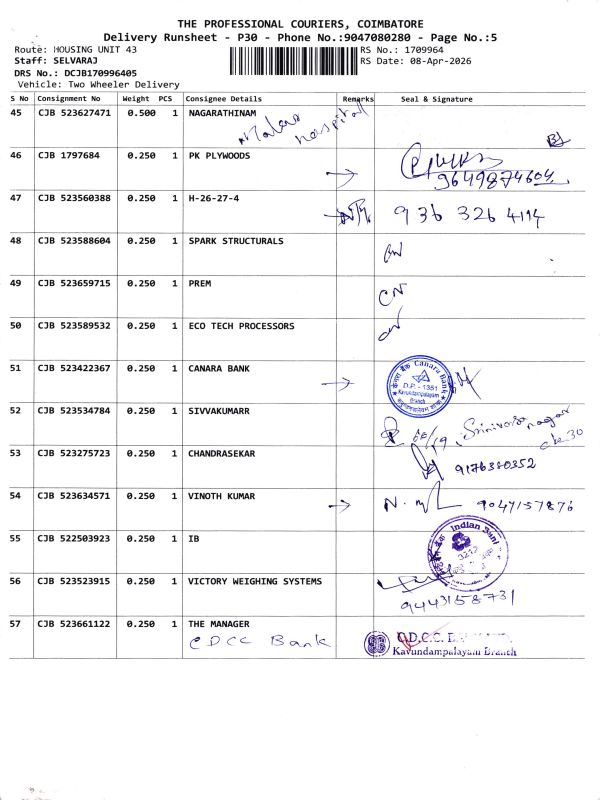 THE PROFESSIONAL COURIERS, COIMBATORE
Delivery Runsheet - P30 - Phone No.:9047080280 - Page No.:5
Route: HOUSING UNIT 43
RS No.: 1709964
Staff: SELVARAJ
RS Date: 08-Apr-2026
DRS No.: DCJB170996405
Vehicle: Two Wheeler Delivery
S No Consignment No Weight PCS Consignee Details Remarks Seal & Signature
45 CJB 523627471 0.500 1 NAGARATHINAM
hospital
46 CJB 1797684 0.250 1 PK PLYWOODS
9649874604
47 CJB 523560388 0.250 1 H-26-27-4
936 326 4114
48 CJB 523588604 0.250 1 SPARK STRUCTURALS
49 CJB 523659715 0.250 1 PREM
CN
50 CJB 523589532 0.250 1 ECO TECH PROCESSORS
CN
51 CJB 523422367 0.250 1 CANARA BANK
Canara Bank
D.P. - 1351
Kavundampalayam
Branch
52 CJB 523534784 0.250 1 SIVVAKUMARR
Srinivasa nagar
cbe 30
53 CJB 523275723 0.250 1 CHANDRASEKAR
9176380352
54 CJB 523634571 0.250 1 VINOTH KUMAR
9047157876
55 CJB 522503923 0.250 1 IB
Indian Bank
56 CJB 523523915 0.250 1 VICTORY WEIGHING SYSTEMS
9443158731
57 CJB 523661122 0.250 1 THE MANAGER
CDCC Bank
Kavundampalayam Branch